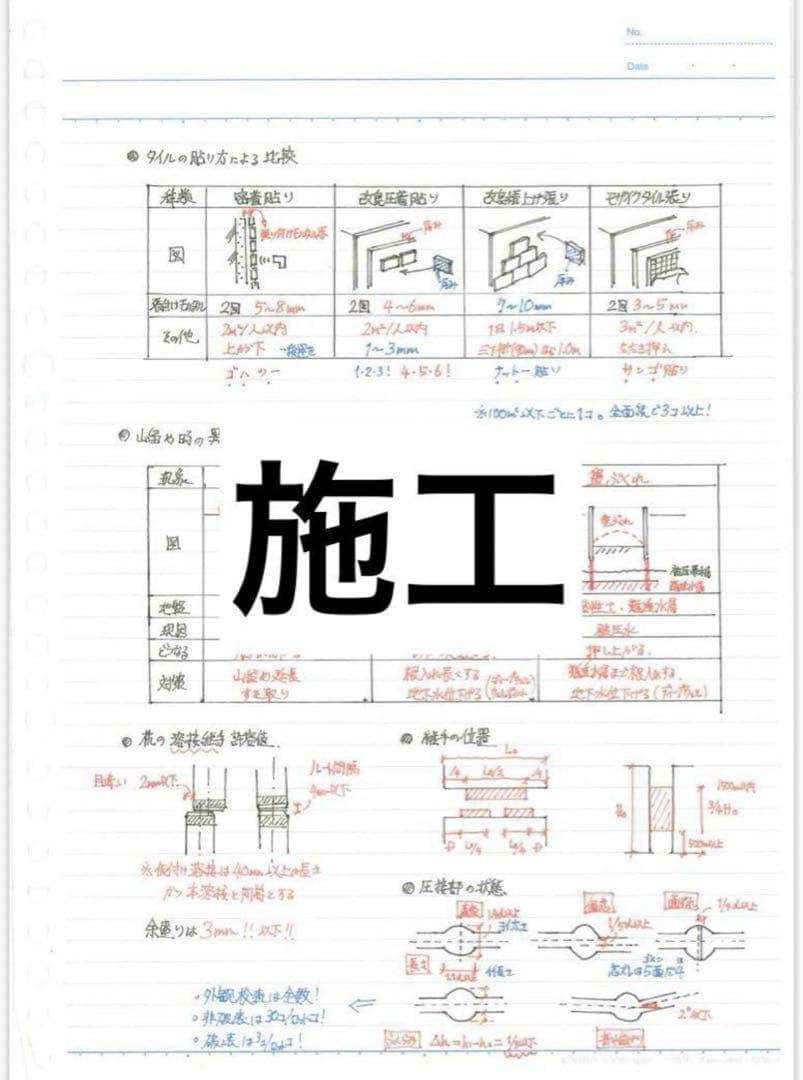 No.
Date
タイルの貼り方による比較
種類 密着貼り 改良圧着貼り 改良積上げ張り モザイクタイル張り
図 張り付けモルタル厚 厚み 厚み 厚み 厚み 厚み
2回 5~8mm 2回 4~6mm 7~10mm 2回 3~5mm
その他 2m²/人以内 2m²/人以内 1日1.5m以下 3m²/人以内
上から下 一段置き 1~3mm たたき押え
ゴハツー 1・2・3! 4・5・6! ナットー貼り サンゴ貼り
※100m²以下ごとに1コ。全面積で3コ以上!
山留め時の
施工
現象 盤ぶくれ
図 盤ぶくれ
被圧帯水層
地盤 難透水層
原因 被圧水
どうなる 押し上がる。
対策 山留め延長 根入れ長くする 難透水層まで根入れする。
すき取り 地下水位下げる(ディープウェル ウェルポイント) 地下水位下げる(ディープウェル)
杭の溶接継手許容値
目違い 2mm以下
ルート間隔
4mm以下
※仮付け溶接は40mm以上の長さ
かつ本溶接と同等とする
余盛りは3mm!!以下!!
継手の位置
L₀
L₀/2
L₀/4 L₀/4
H₀
1500mm以内
3/4H₀
500mm以上
圧接部の状態
直径 1.4d以上
偏芯 1/5d以下
面ずれ 1/4d以下
長さ 1.1d以上
2°以下
ふくらみ Δh=h₁-h₂=1/5d以下
・外観検査は全数!
・非破壊は30コ/ロット!
・破壊は3コ/ロット!